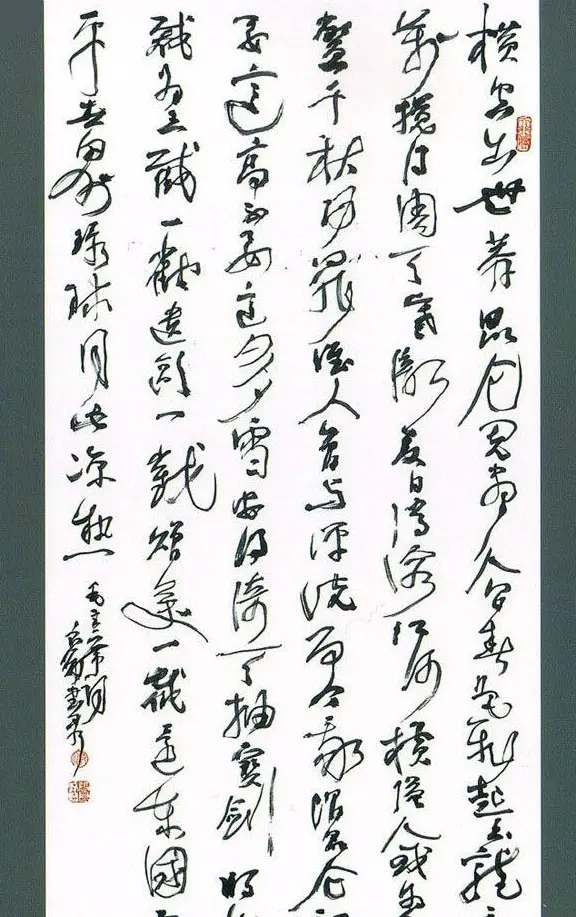 横空出世莽昆仑阅尽人间春色飛起玉龍
万搅得周天寒彻夏日消溶江河横溢人或为
鳖千秋功罪谁人曾与评说而今我谓昆仑
要这高不要这多雪安得倚天抽寶剑把
裁为三截一截遗欧一截赠美一截还东國
平世界环球同此凉热
毛主席词